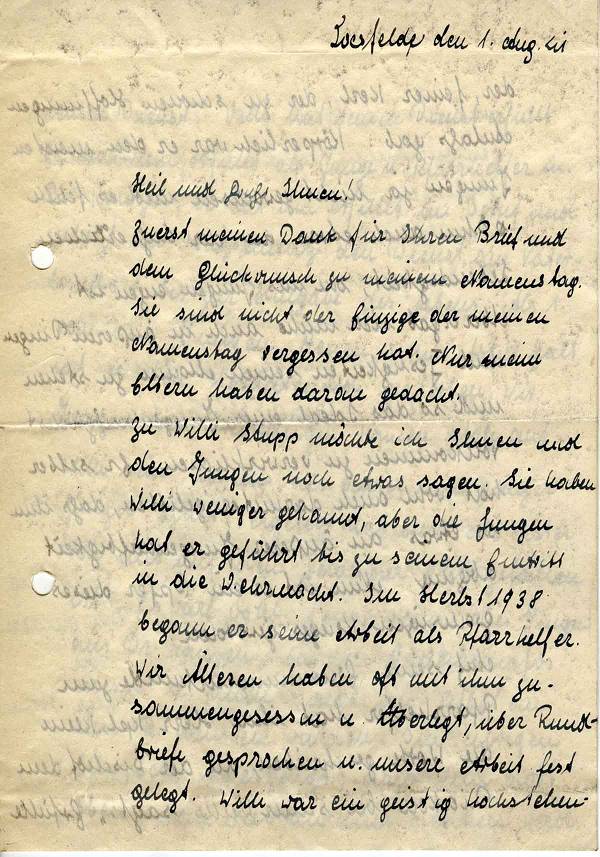 Coesfeld, den 1. Aug. 41
Heil und Gruß Ihnen!
Zuerst meinen Dank für Ihren Brief und
dem Glückwunsch zu meinem Namenstag.
Sie sind nicht der Einzige der meinen
Namenstag vergessen hat. Nur mein
Eltern haben daran gedacht.
Zu Willi Stupp möchte ich Ihnen und
den Jungen noch etwas sagen. Sie haben
Willi weniger gekannt, aber die Jungen
hat er geführt bis zu seinem Eintritt
in die Wehrmacht. Im Herbst 1938
begann er seine Arbeit als Pfarrhelfer.
Wir Älteren haben oft mit ihm zu-
sammengesessen u. überlegt, über Rund-
briefe gesprochen u. unsere Arbeit fest
gelegt. Willi war ein geistig hochstehen-